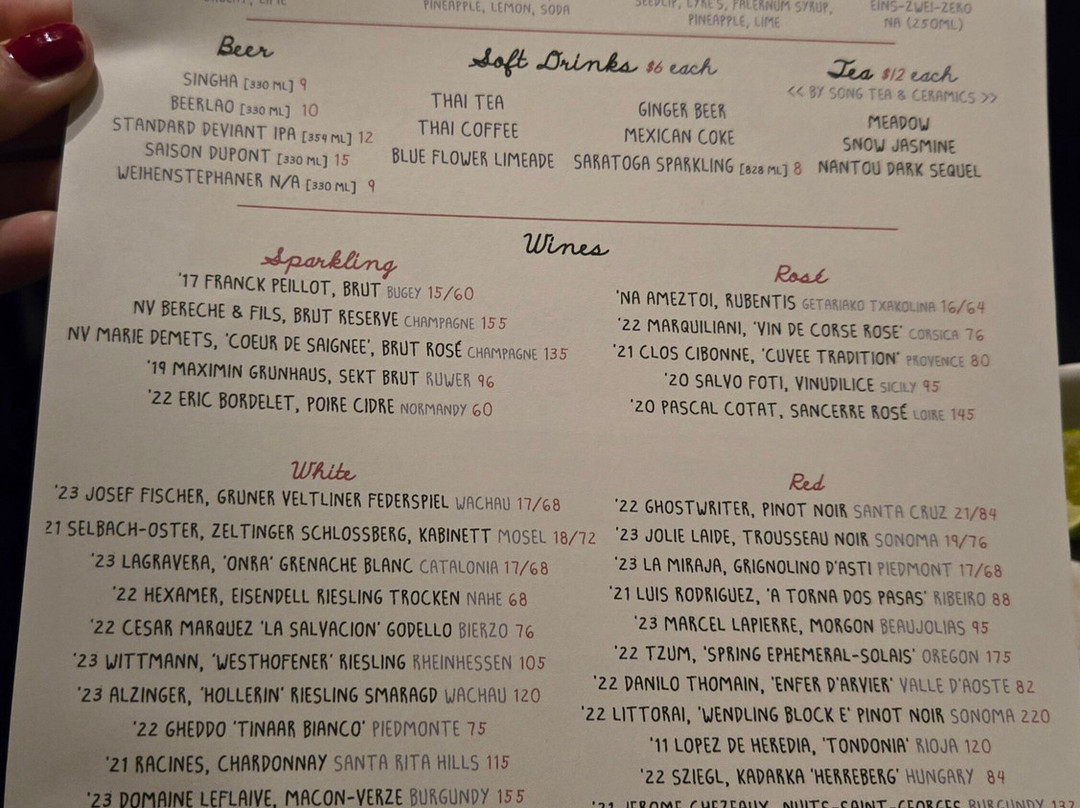 PINEAPPLE, LEMON, SODA
SEEDLIP, LYRE'S, FALERNUM SYRUP,
PINEAPPLE, LIME
EINS-ZWEI-ZERO
NA (250ML)
Beer
SINGHA [330 ML] 9
BEERLAO [330 ML] 10
STANDARD DEVIANT IPA [354 ML] 12
SAISON DUPONT [330 ML] 15
WEIHENSTEPHANER N/A [330 ML] 9
Soft Drinks $6 each
THAI TEA
THAI COFFEE
BLUE FLOWER LIMEADE
GINGER BEER
MEXICAN COKE
SARATOGA SPARKLING [828 ML] 8
Tea $12 each
<< BY SONG TEA & CERAMICS >>
MEADOW
SNOW JASMINE
NANTOU DARK SEQUEL
Wines
Sparkling
'17 FRANCK PEILLOT, BRUT BUGEY 15/60
NV BERECHE & FILS, BRUT RESERVE CHAMPAGNE 155
NV MARIE DEMETS, 'COEUR DE SAIGNEE', BRUT ROSÉ CHAMPAGNE 135
'19 MAXIMIN GRUNHAUS, SEKT BRUT RUWER 96
'22 ERIC BORDELET, POIRE CIDRE NORMANDY 60
Rosé
'NA AMEZTOI, RUBENTIS GETARIAKO TXAKOLINA 16/64
'22 MARQUILIANI, 'VIN DE CORSE ROSE' CORSICA 76
'21 CLOS CIBONNE, 'CUVEE TRADITION' PROVENCE 80
'20 SALVO FOTI, VINUDILICE SICILY 95
'20 PASCAL COTAT, SANCERRE ROSÉ LOIRE 145
White
'23 JOSEF FISCHER, GRUNER VELTLINER FEDERSPIEL WACHAU 17/68
21 SELBACH-OSTER, ZELTINGER SCHLOSSBERG, KABINETT MOSEL 18/72
'23 LAGRAVERA, 'ONRA' GRENACHE BLANC CATALONIA 17/68
'22 HEXAMER, EISENDELL RIESLING TROCKEN NAHE 68
'22 CESAR MARQUEZ 'LA SALVACION' GODELLO BIERZO 76
'23 WITTMANN, 'WESTHOFENER' RIESLING RHEINHESSEN 105
'23 ALZINGER, 'HOLLERIN' RIESLING SMARAGD WACHAU 120
'22 GHEDDO 'TINAAR BIANCO' PIEDMONTE 75
'21 RACINES, CHARDONNAY SANTA RITA HILLS 115
'23 DOMAINE LEFLAIVE, MACON-VERZE BURGUNDY 155
Red
'22 GHOSTWRITER, PINOT NOIR SANTA CRUZ 21/84
'23 JOLIE LAIDE, TROUSSEAU NOIR SONOMA 19/76
'23 LA MIRAJA, GRIGNOLINO D'ASTI PIEDMONT 17/68
'21 LUIS RODRIGUEZ, 'A TORNA DOS PASAS' RIBEIRO 88
'23 MARCEL LAPIERRE, MORGON BEAUJOLIAS 95
'22 TZUM, 'SPRING EPHEMERAL-SOLAIS' OREGON 175
'22 DANILO THOMAIN, 'ENFER D'ARVIER' VALLE D'AOSTE 82
'22 LITTORAI, 'WENDLING BLOCK E' PINOT NOIR SONOMA 220
'11 LOPEZ DE HEREDIA, 'TONDONIA' RIOJA 120
'22 SZIEGL, KADARKA 'HERREBERG' HUNGARY 84
'21 JEROME CHEZEAUX, NUITS-SAINT-GEORGES BURGUNDY